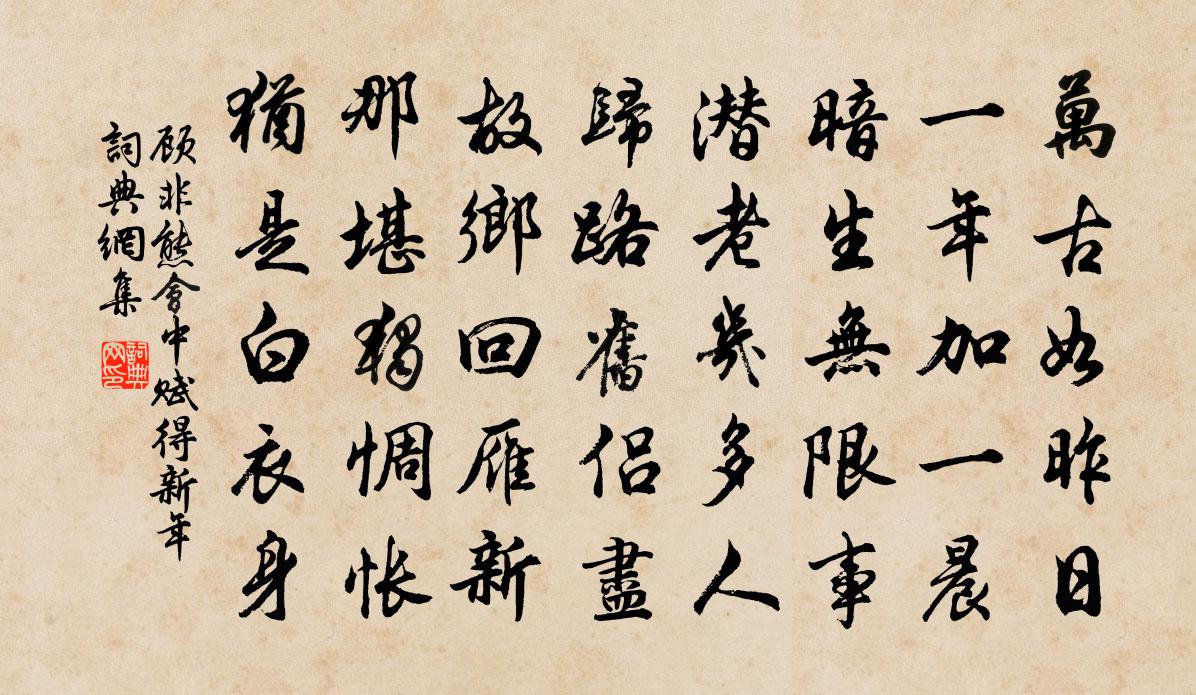 萬古如昨日
一年加一晨
暗生無限事
潜老幾多人
歸路舊侶盡
故鄉回雁新
那堪獨惆悵
猶是白衣身
顾非熊會中賦得新年
詞典網集
詞典网印